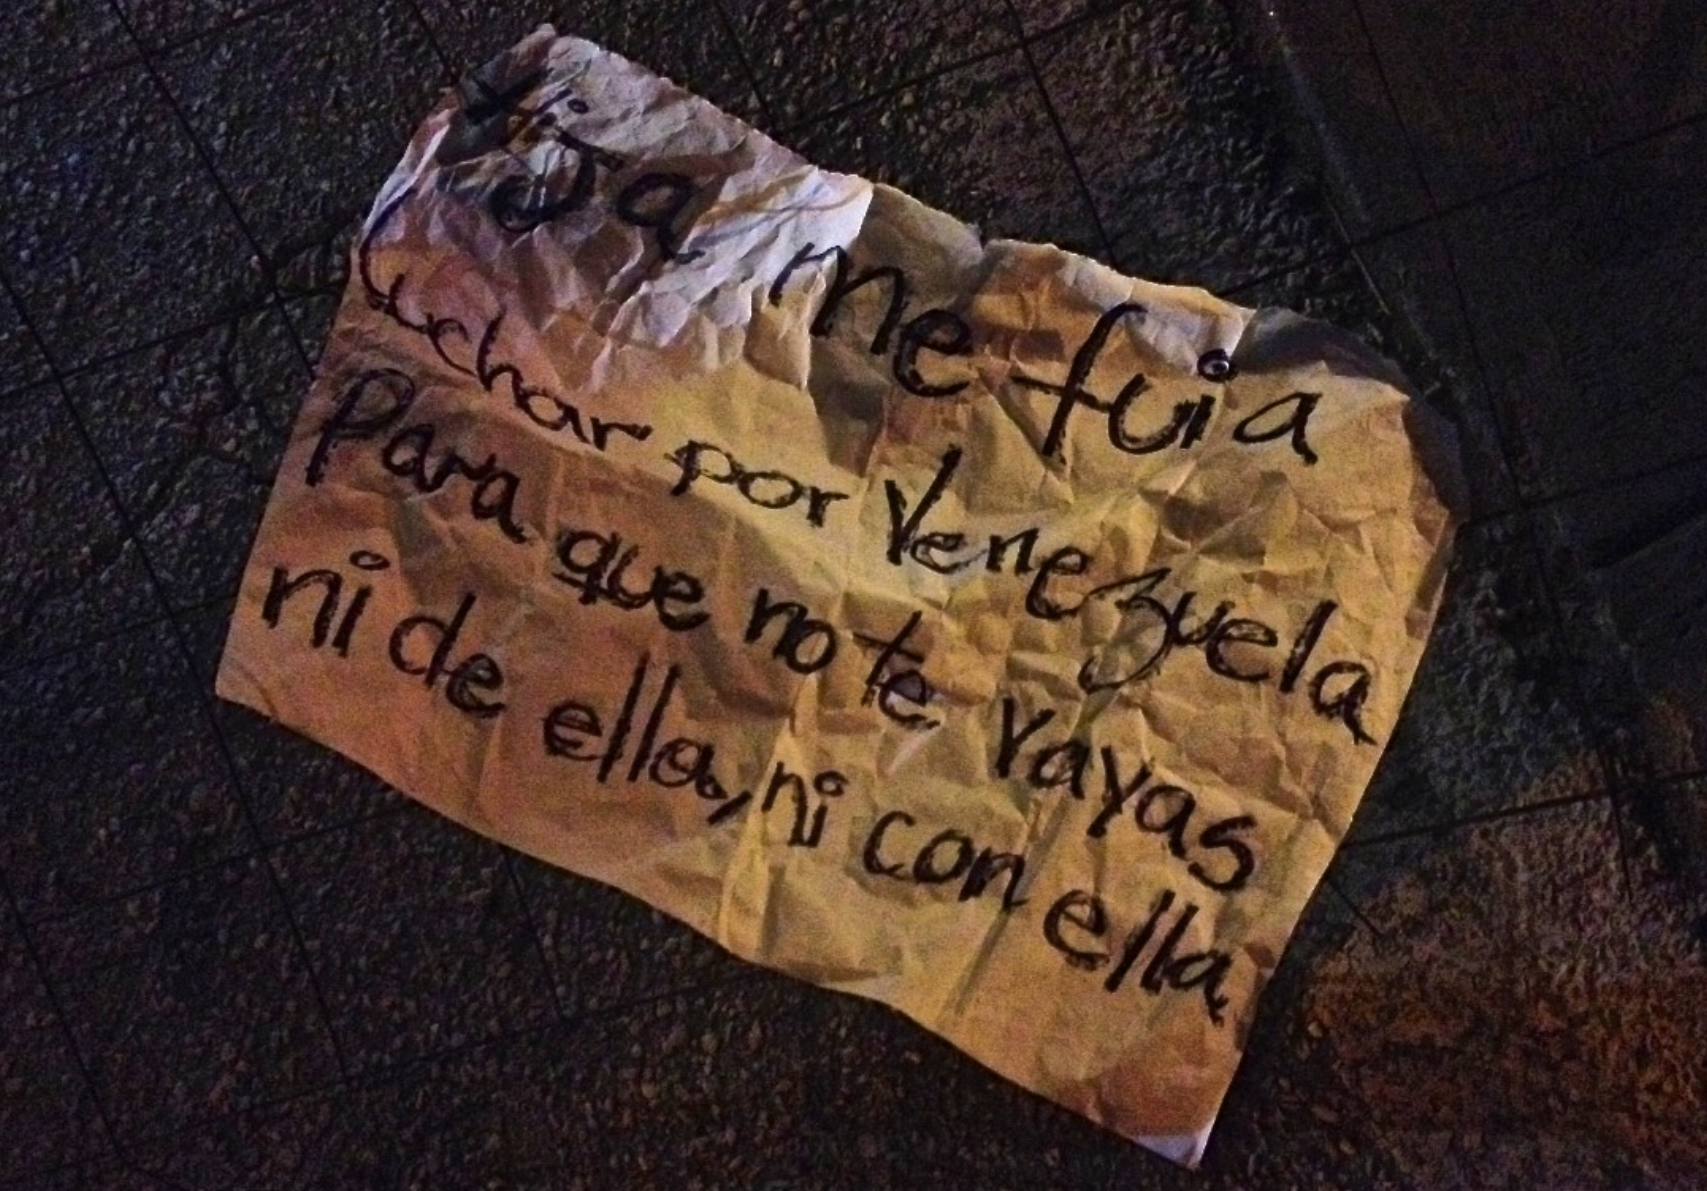 Hija me fui a
luchar por Venezuela
Para que no te vayas
ni de ella, ni con ella